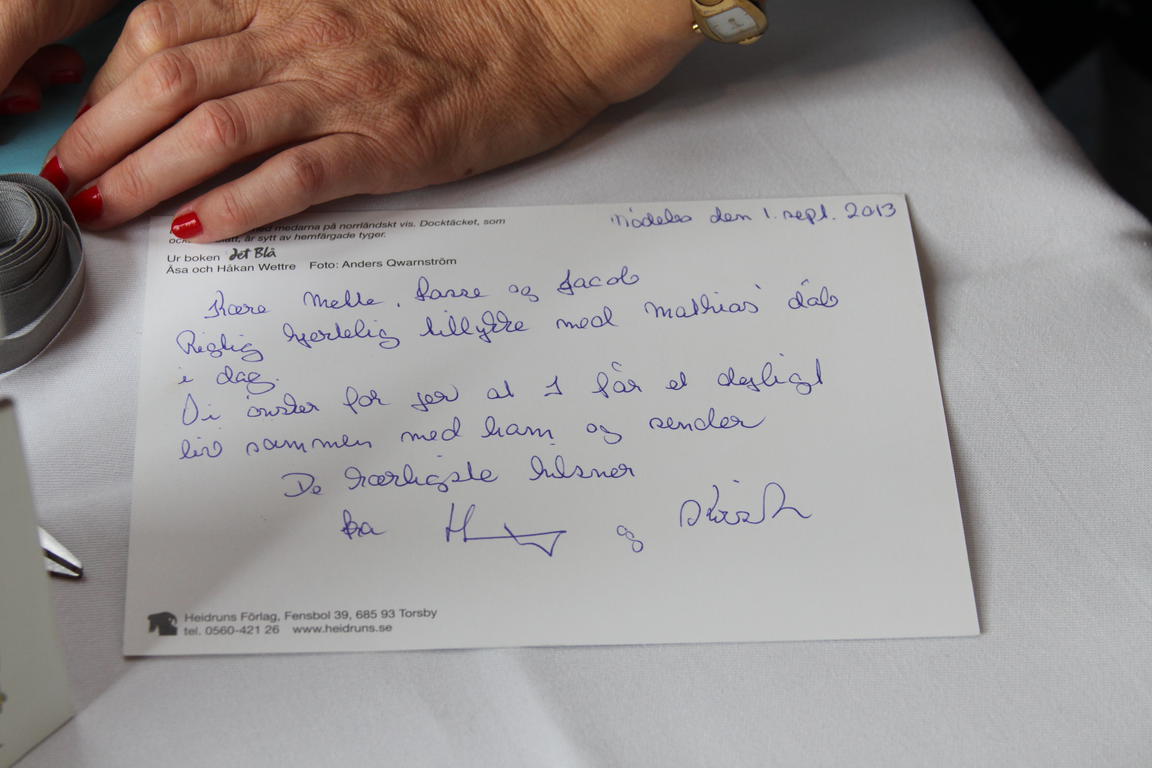 medarna på norrländskt vis. Docktäcket, som
är sytt av hemfärgade tyger.
Ur boken det Blå
Åsa och Håkan Wettre Foto: Anders Qwarnström
den 1. sept. 2013
Kære Melle, Lasse og Jacob
Rigtig hjertelig tillykke med Mathias' dåb
i dag.
Vi ønsker for jer at I får et dejligt
liv sammen med ham og sender
De kærligste hilsner
fra og
Heidruns Förlag, Fensbol 39, 685 93 Torsby
tel. 0560-421 26 www.heidruns.se